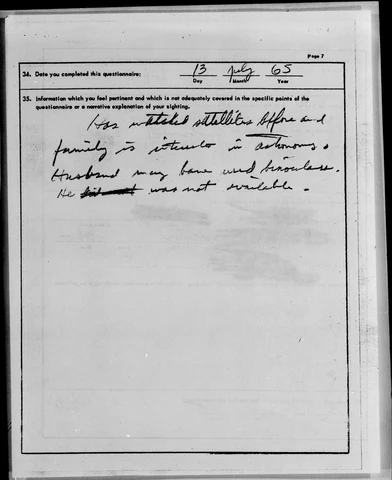 Page 7
34. Date you completed this questionnaire: 13 July 65
Day Month Year
35. Information which you feel pertinent and which is not adequately covered in the specific points of the
questionnaire or a narrative explanation of your sighting.
Has watched satellites before and
family is in astronomy.
Husband may have used binoculars.
He was not available.